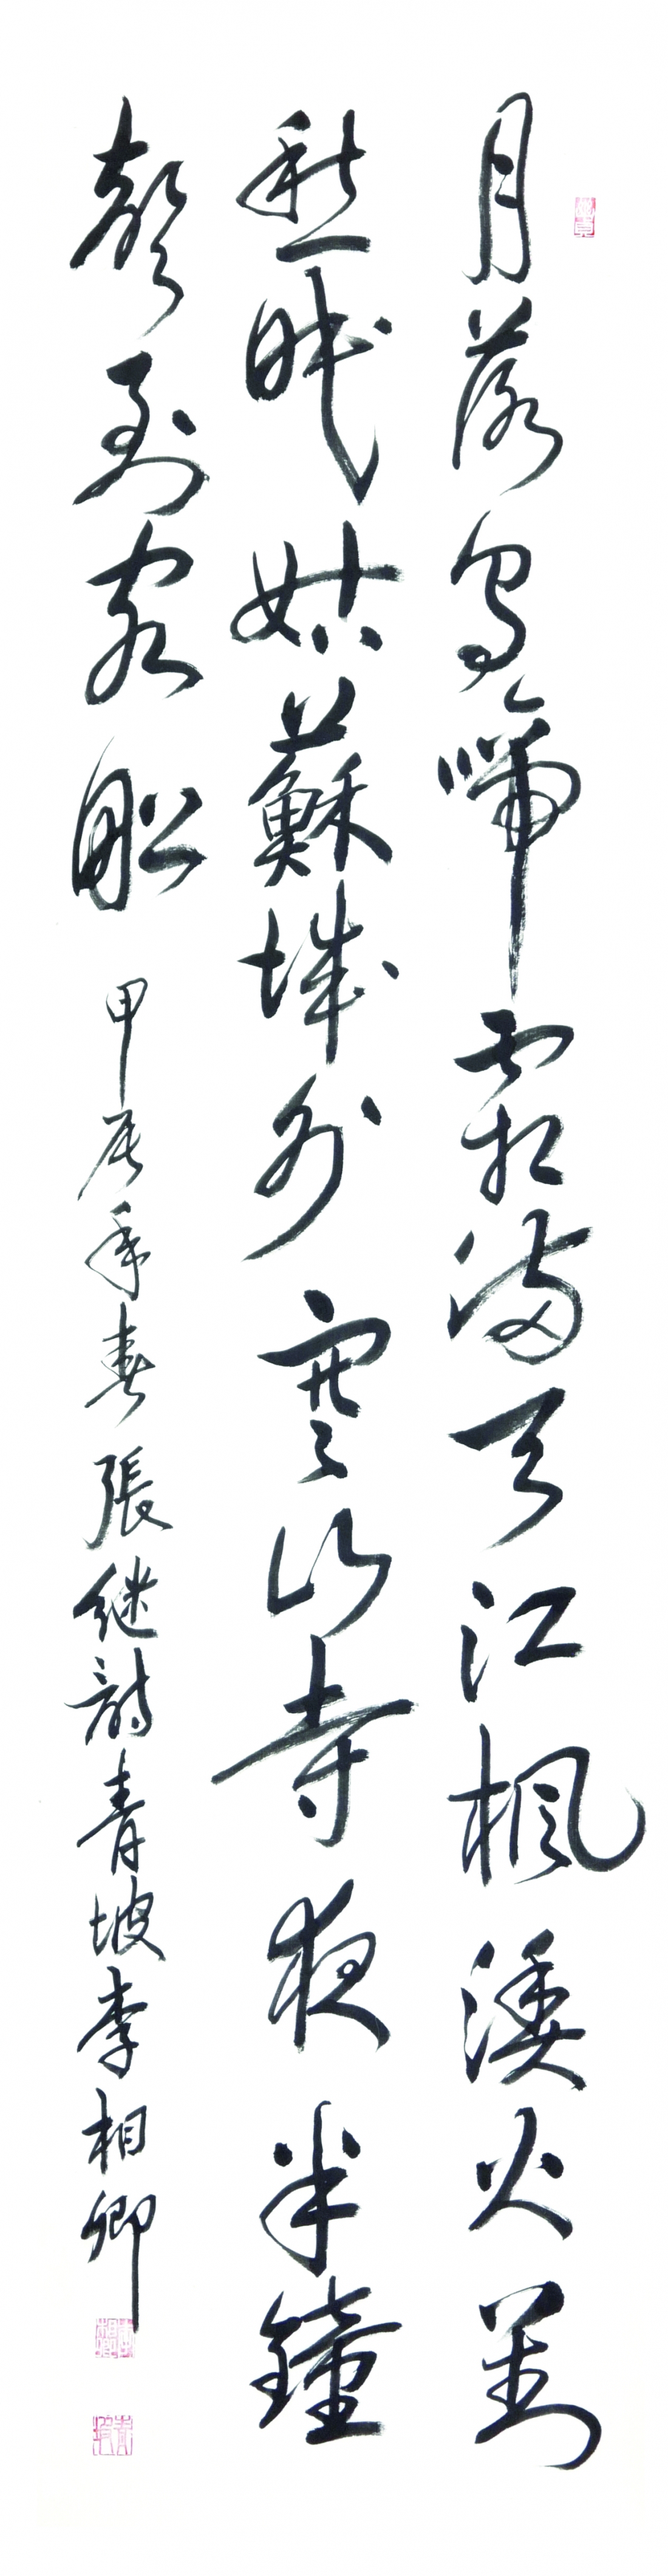 月落烏啼霜滿天江楓漁火對
愁眠姑蘇城外寒山寺夜半鐘
聲到客船 甲辰年春 張継詩 青坡 李相卿
青坡